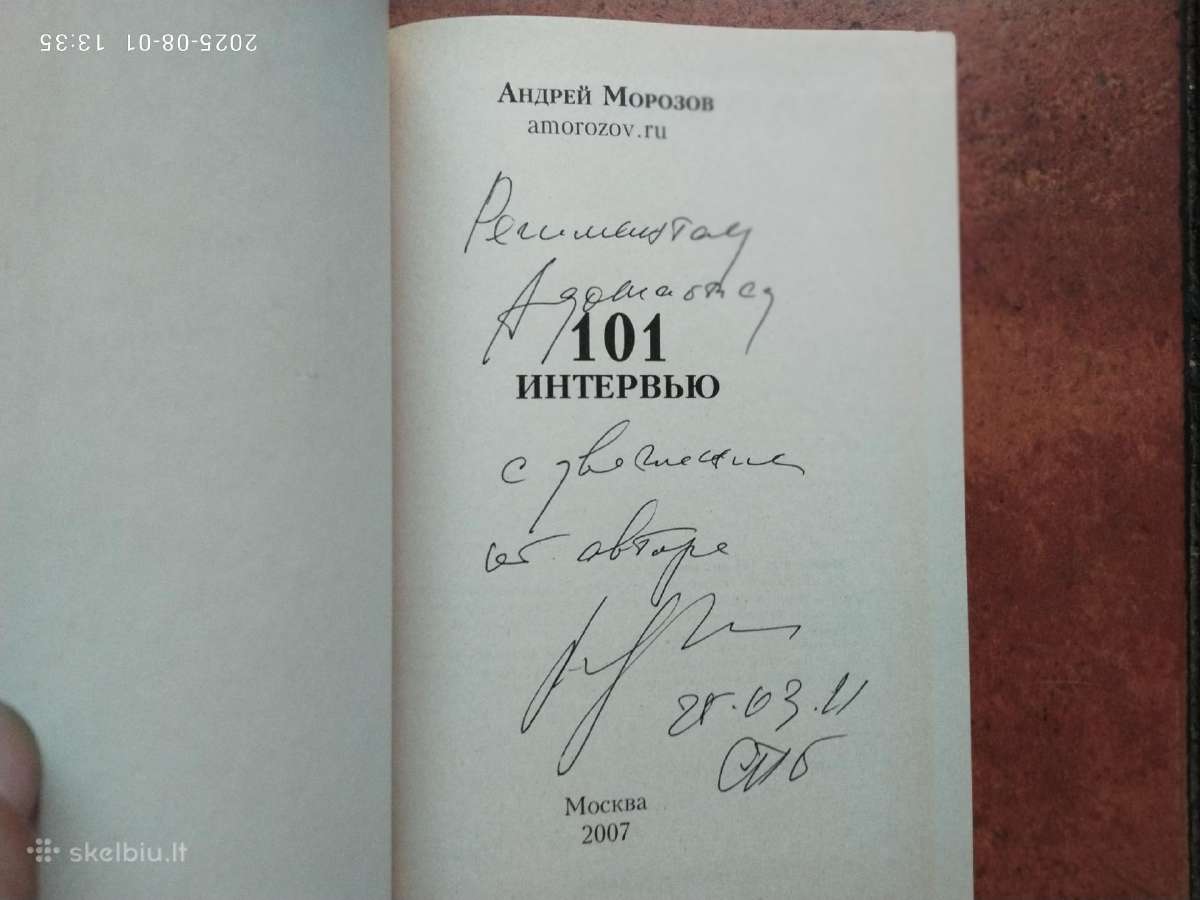 2025-08-01 13:35
Андрей Морозов
amorozov.ru
101
ИНТЕРВЬЮ
с уважением
от автора
03.11
СПб
Москва
2007
skelbiu.lt